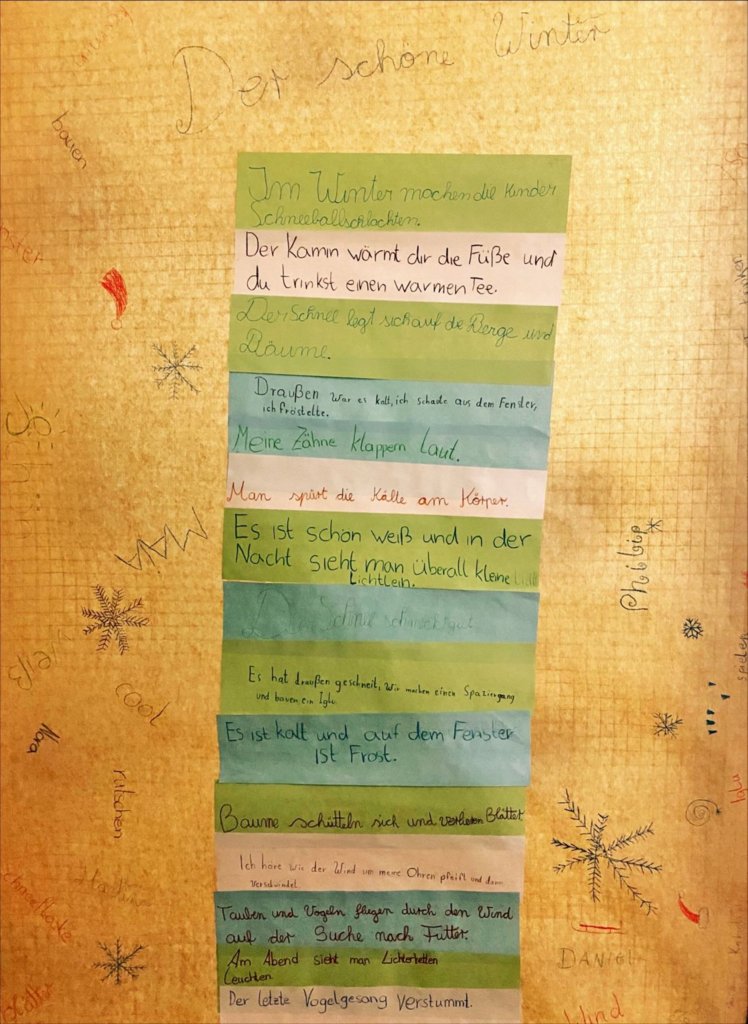 Der schöne Winter
bauen
Im Winter machen die Kinder
Schneeballschlachten.
Der Kamin wärmt dir die Füße und
du trinkst einen warmen Tee.
Der Schnee legt sich auf die Berge und
Bäume.
Draußen war es kalt, ich schaute aus dem Fenster,
ich fröstelte.
Meine Zähne klappern laut.
Man spürt die Kälte am Körper.
MAIA
Es ist schön weiß und in der
Nacht sieht man überall kleine
Lichtlein.
Philipp
Der Schnee schmeckt gut.
weiß
Es hat draußen geschneit, wir machen einen Spaziergang
und bauen ein Iglu.
cool
Nora
Es ist kalt und auf dem Fenster
ist Frost.
rutschen
Iglu
Bäume schütteln sich und verlieren Blätter
Ich höre wie der Wind um meine Ohren pfeift und dann
verschwindet
Tauben und Vögeln fliegen durch den Wind
auf der Suche nach Futter.
Am Abend sieht man Lichterketten
leuchten.
DANIEL
Der letzte Vogelgesang verstummt.
Wind